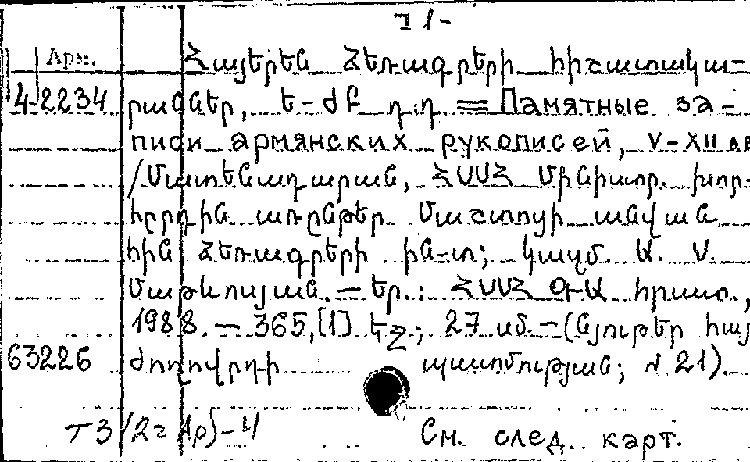 71-
Арм. Հայերեն ձեռագրերի հիշատակա-
4-2234 րաններ, ե-ժբ դ.դ. = Памятные за-
писи армянских рукописей, V-XII вв
/Մատենադարան, ՀՍՍՀ Մինիստր. խոր-
հրրդին առընթեր Մաշտոցի անվան
հին ձեռագրերի ին-տ; կազմ. Ա. Ս.
Մաթևոսյան. — Եր.: ՀՍՍՀ ԳԱ հրատ.,
1988. — 365,[1] էջ; 27 սմ. — (Նյութեր հայ
63226 ժողովրդի պատմության; N 21).
Т3(2=Ар)-4 См. след. карт.